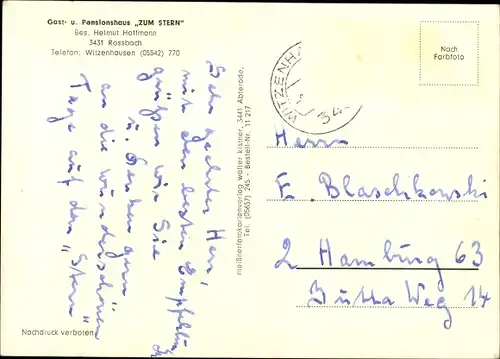 Gast- u. Pensionshaus „ZUM STERN"
Bes. Helmut Hoffmann
3431 Rossbach
Telefon: Witzenhausen (05542) 770
Sehr geehrter Herr,
mit den besten Empfehlungen
grüßen wir Sie
u. denken gern
an die wunderschönen
Tage auf dem „Stern"
Nachdruck verboten
meißnerfotokartenverlag walter kistner, 3441 Abterode,
Tel. (05657) 245 - Bestell-Nr. 11 217
WITZENH
34
Nach
Farbfoto
Herrn
E. Blaschkowski
2 Hamburg 63
Butta Weg 14